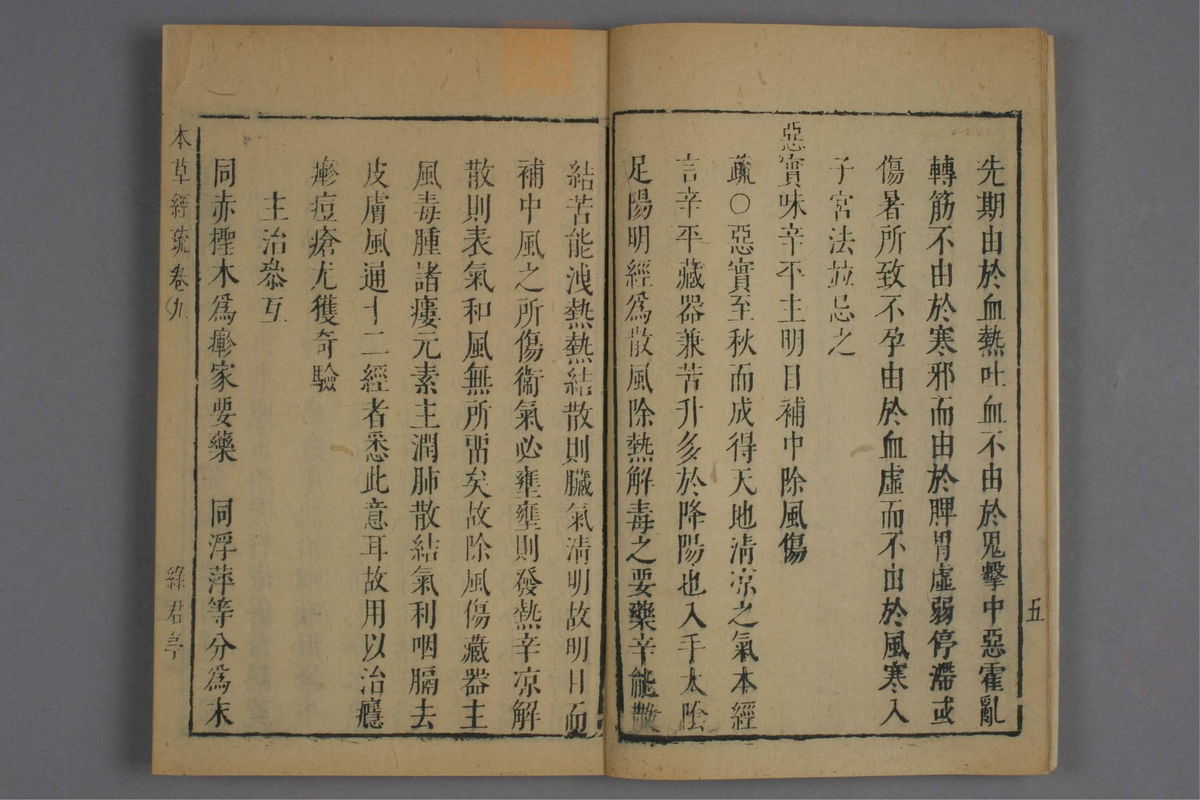 五
先期由於血熱吐血不由於鬼擊中惡霍亂
轉筋不由於寒邪而由於脾胃虛弱停滯或
傷暑所致不孕由於血虛而不由於風寒入
子宮法並忌之
惡實味辛平主明目補中除風傷
疏○惡實至秋而成得天地清凉之氣本經
言辛平藏器兼苦升多於降陽也入手太陰
足陽明經爲散風除熱解毒之要藥辛能散
結苦能洩熱熱結散則臟氣清明故明目而
補中風之所傷衞氣必壅壅則發熱辛凉解
散則表氣和風無所畱矣故除風傷藏器主
風毒腫諸瘻元素主潤肺散結氣利咽膈去
皮膚風通十二經者悉此意耳故用以治癮
瘮痘瘡尤獲奇驗
主治參互
同赤檉木爲瘮家要藥　同浮萍等分爲末
本草經疏卷九
綠君亭